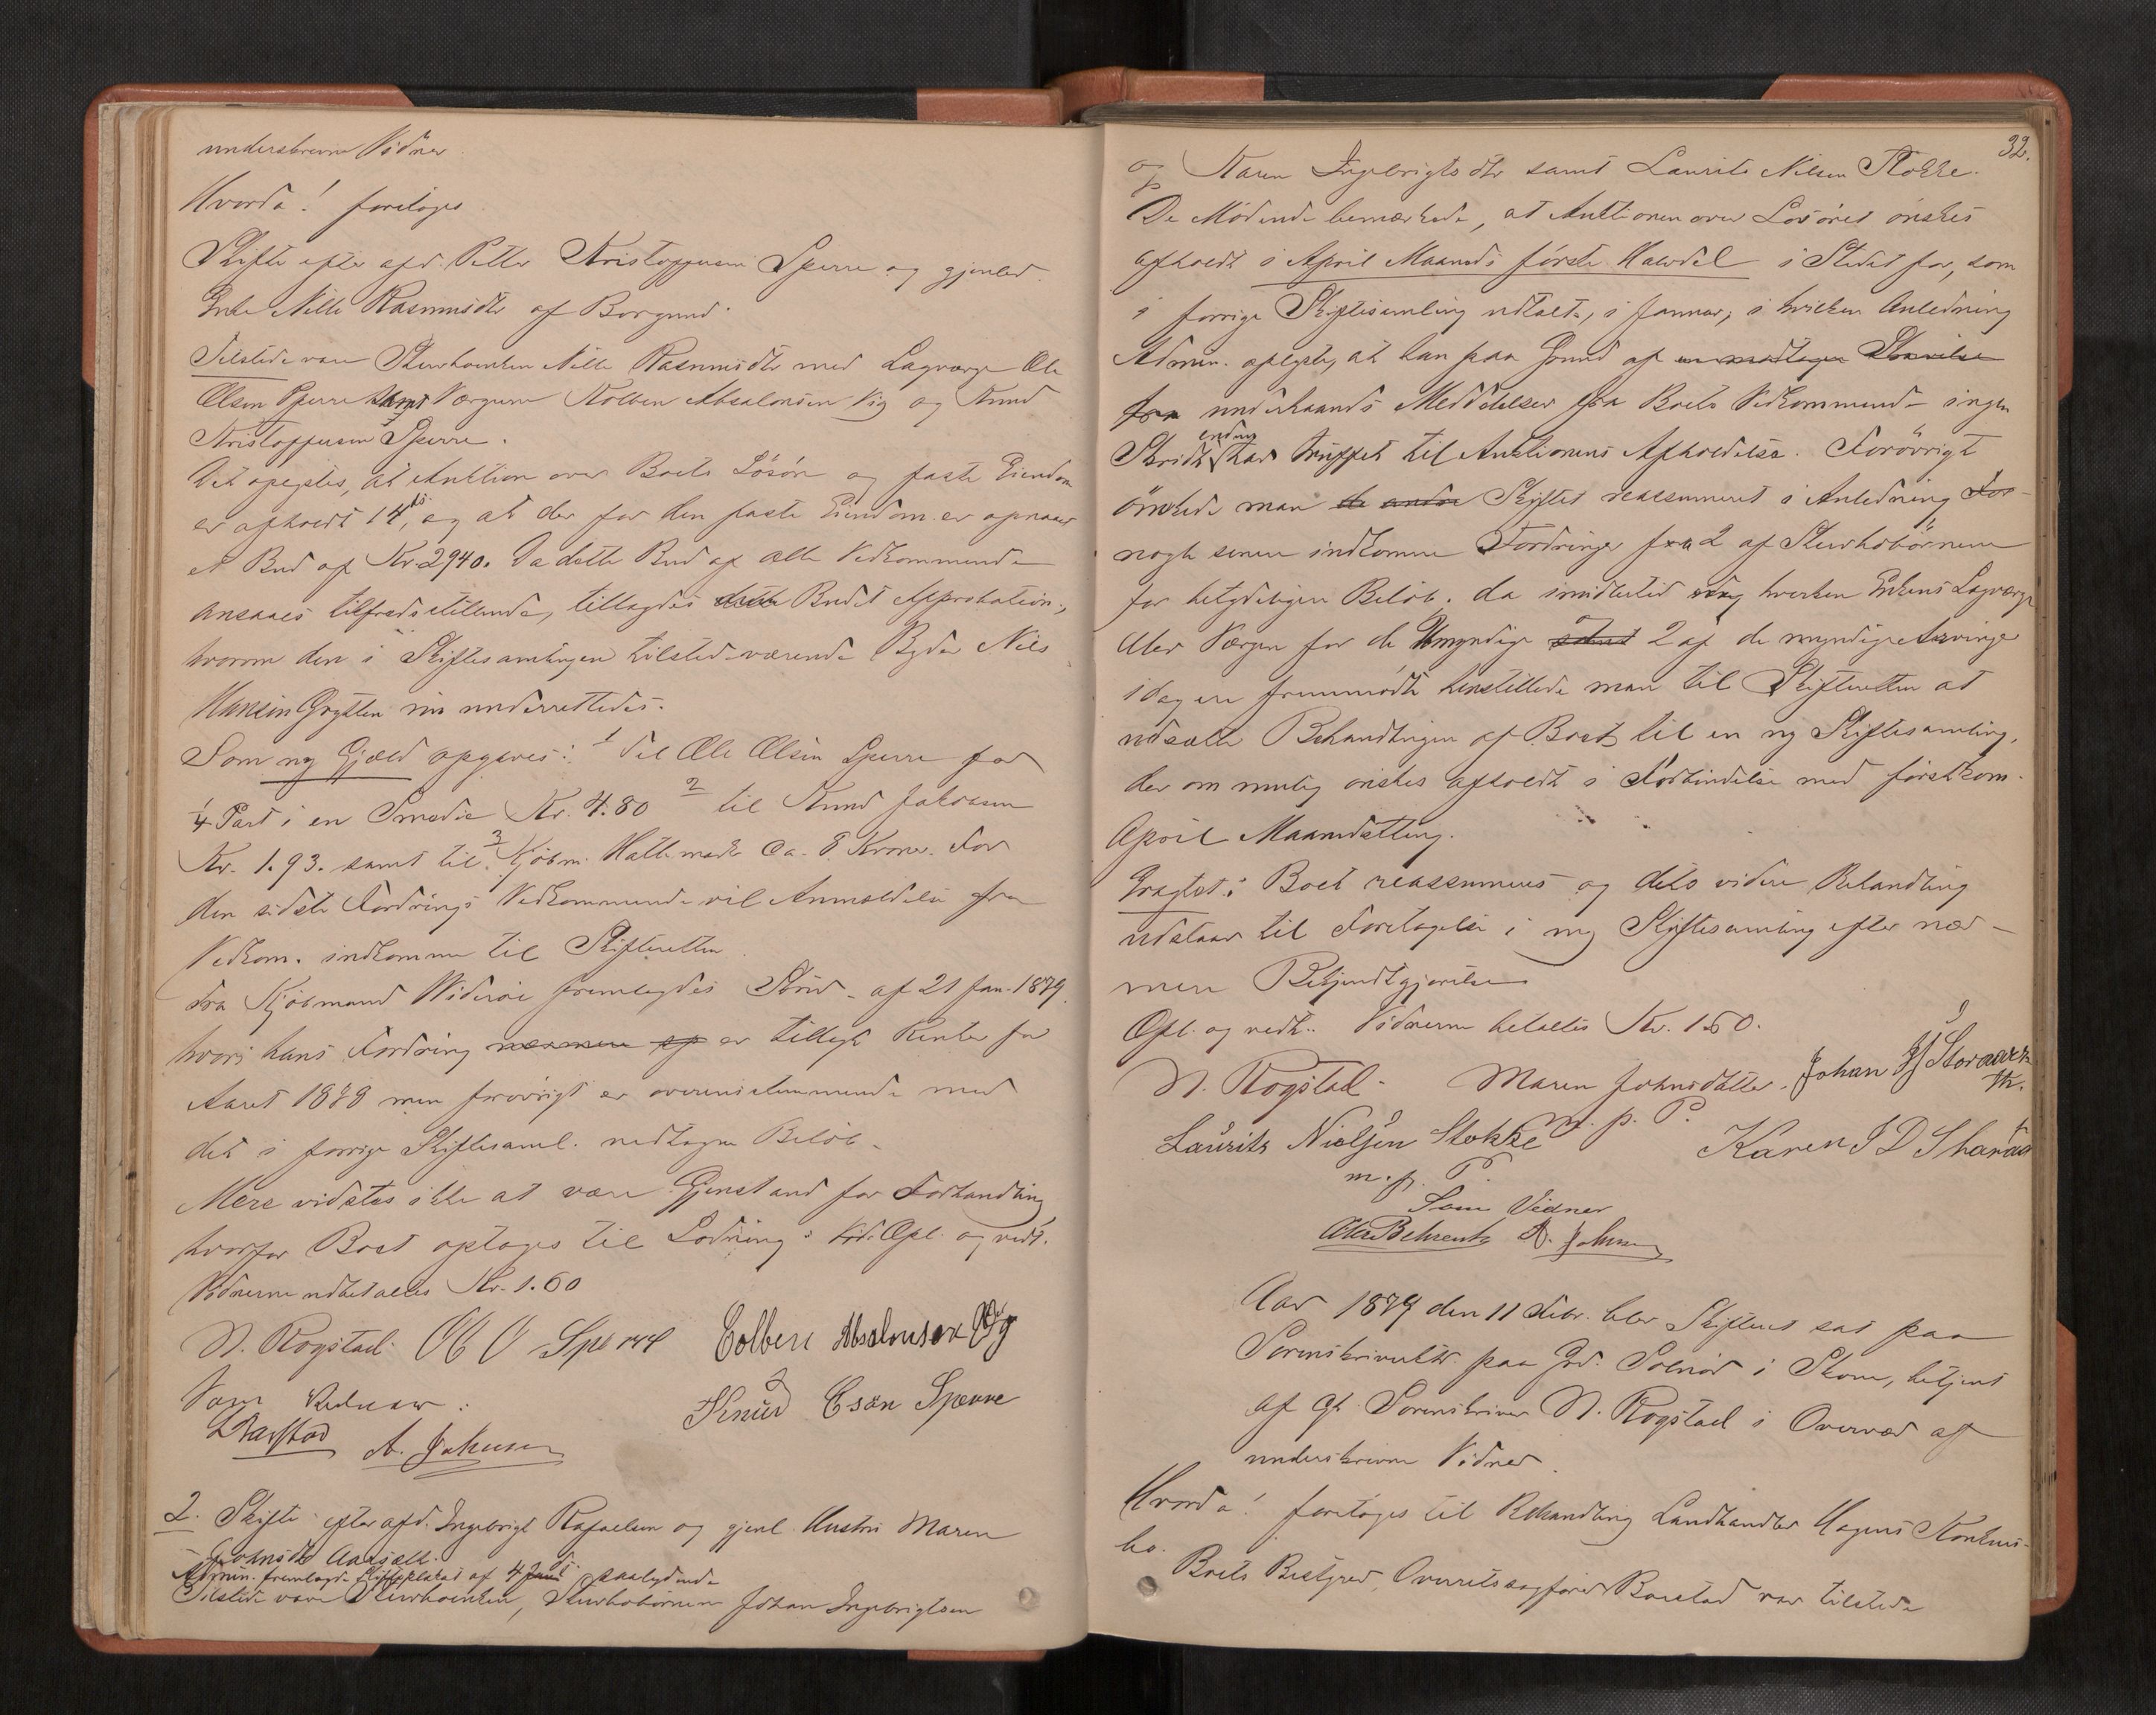 underskrevne Vidner
Hvorda! foretoges
Skifte efter afd. Petter Kristoffersen Sperre og gjenlev.
Enke Nille Rasmusdtr af Borgund.
Tilstede vare Stervboenken Nille Rasmusdtr med Lagværge Ole
Olsen Sperre samt Værgerne Kolben Absalonsen Vig og Knud
Kristoffersen Sperre.
Det oplystes, at Auktion over Boets Lösöre og faste Eiendom
er afholdt 14 ds, og at der for den faste Eiendom er opnaaet
et Bud af Kr. 2940. Da dette Bud af alle Vedkommende
ansaaes tilfredsstillende, tillagdes dette Budet Approbation,
hvorom den i Skiftesamlingen tilstedeværende Byder Nils
Hansen Grytten nu underrettedes.
Som ny Gjæld opgaves: 1 Til Ole Olsen Sperre for
1/4 Part i en Smedie Kr. 4.80 2 til Knud Jakobsen
Kr. 1.93. samt til 3 Kjöbm. Hattemark Ca. 8 Kroner. For
den sidste Fordrings Vedkommende vil Anmeldelse fra
Vedkom. indkomme til Skifteretten.
Fra Kjöbmand Wideröe fremlagdes Skriv. af 21 Jan. 1879.
hvori hans Fordring er tillagt Renter for
Aaret 1878 men forövrigt er overensstemmende med
det i forrige Skiftesaml. vedtagne Belöb.
Mere vidstes ikke at være Gjenstand for Forhandling
hvorfor Boet optoges til Lodning. Opl. og vedt.
Vidnerne udbetaltes Kr. 1.60
N. Rogstad. O O Sperre Colben Absalonsen Vig
Som Vidner: Knud C sön Sperre
A. Johnsen
2. Skifte efter afd. Ingebrigt Rafaelsen og gjenl. Hustru Maren
Johnsdtr Aarsæth.
Admin. fremlagde Skifteplakat af 4 ds. saalydende
Tilstede vare Stervboenken, Stervbobörnene Johan Ingebrigtsen
32.
og Karen Ingebrigtsdtr samt Laurits Nilsen Stokke.
De Mödende bemærkede, at Auktionen over Lösöret önskes
afholdt i April Maaneds förste Halvdel i Stedet for, som
i forrige Skiftesamling udtalte, i Januar, i hvilken Anledning
Admin. oplyste, at han paa Grund af en modtagen Skrivelse
fra underhaands Meddelelser fra Boets Vedkommende ingen
Skridt endnu har truffet til Auktionens Afholdelse. Forövrigt
önskede man de andre Skiftet reassumeret i Anledning For-
nogle senere indkomne Fordringer fra 2 af Stervbobörnene
for betydeligere Belöb. da imidlertid hverken Enkens Lagværge
eller Værgen for de Umyndige samt 2 af de myndige Arvinger
idag ere fremmödte henstillede man til Skifteretten at
udsætte Behandlingen af Boet til en ny Skiftesamling,
der om mulig önskes afholdt i Forbindelse med förstkom.
April Maanedstting.
Eragtet: Boet reassumeres og dets videre Behandling
udstaar til Foretagelse i ny Skiftesamling efter nær-
mere Bekjendtgjörelse
Opl. og vedt. Vidnerne betaltes Kr. 1.60.
N. Rogstad. Maren Johnsdatter. Johan IS Storaas
m. p. P.
Laurits Nielsen Stokke Karen I D
m. p. P.
Som Vidner
Behrentz A. Johnsen
Aar 1879 den 11 Febr. blev Skifteret sat paa
Sorenskriverktr. paa Grd. Solnör i Skorve, betjent
af Gb Sorenskriver N. Rogstad i Overvær af
underskrevne Vidner.
Hvorda! foretoges til Behandling Landhandler Konkurs-
bo.
Boets Bestyrer, Overretssagförer Barstad var tilstede